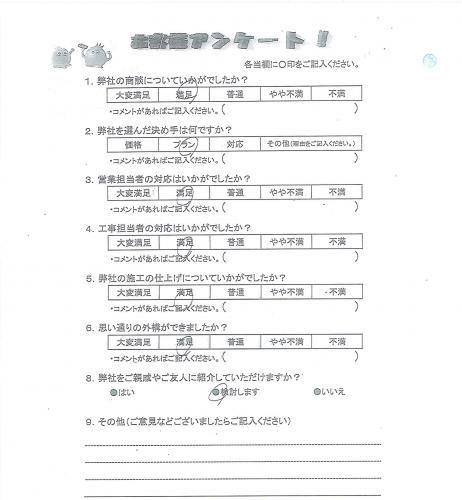 お客様アンケート！
各当欄に○印をご記入ください。
1. 弊社の商談についていかがでしたか？
大変満足 満足 普通 やや不満 不満
・コメントがあればご記入ください。(
2. 弊社を選んだ決め手は何ですか？
価格 プラン 対応 その他(理由をご記入ください。)
・コメントがあればご記入ください。(
3. 営業担当者の対応はいかがでしたか？
大変満足 満足 普通 やや不満 不満
・コメントがあればご記入ください。(
4. 工事担当者の対応はいかがでしたか？
大変満足 満足 普通 やや不満 不満
・コメントがあればご記入ください。(
5. 弊社の施工の仕上げについていかがでしたか？
大変満足 満足 普通 やや不満 不満
・コメントがあればご記入ください。(
6. 思い通りの外構ができましたか？
大変満足 満足 普通 やや不満 不満
・コメントがあればご記入ください。(
8. 弊社をご親戚やご友人に紹介していただけますか？
●はい ●検討します ●いいえ
9. その他(ご意見などございましたらご記入ください)